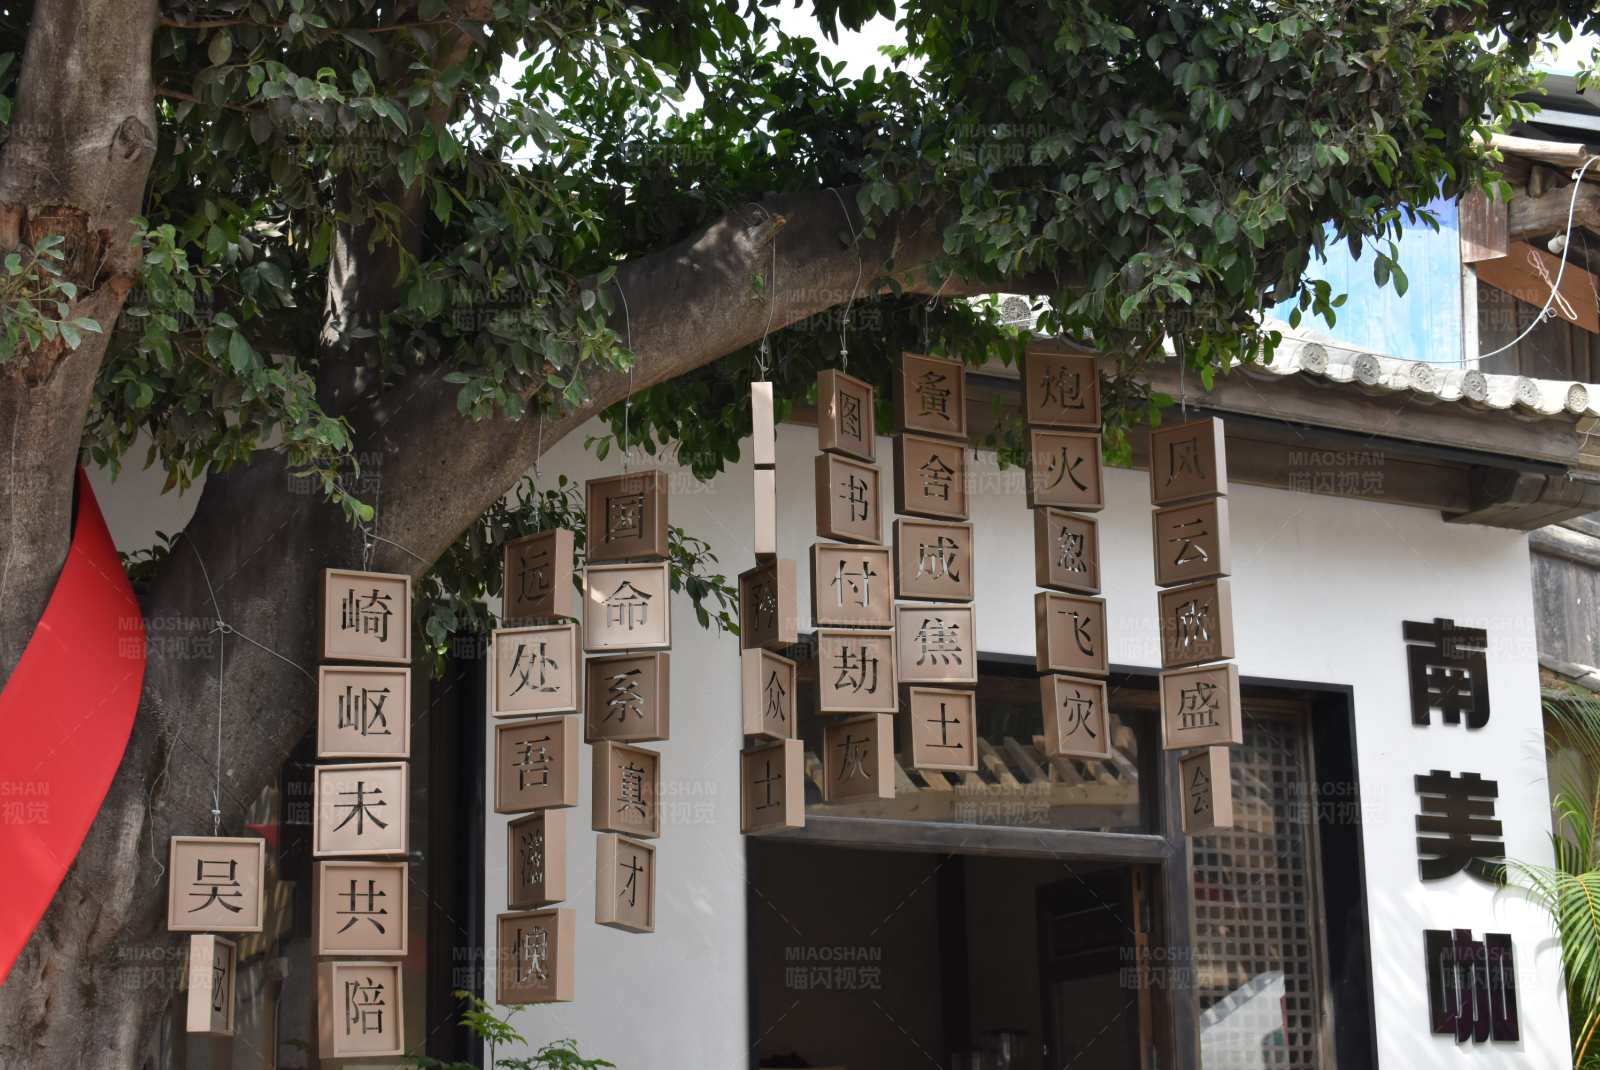 风云欣盛会
炮火忽飞灾
黉舍成焦土
图书付劫灰
众士
国命系真才
远处吾滋愧
崎岖未共陪
吴宓
南美咖
MIAOSHAN
喵闪视觉